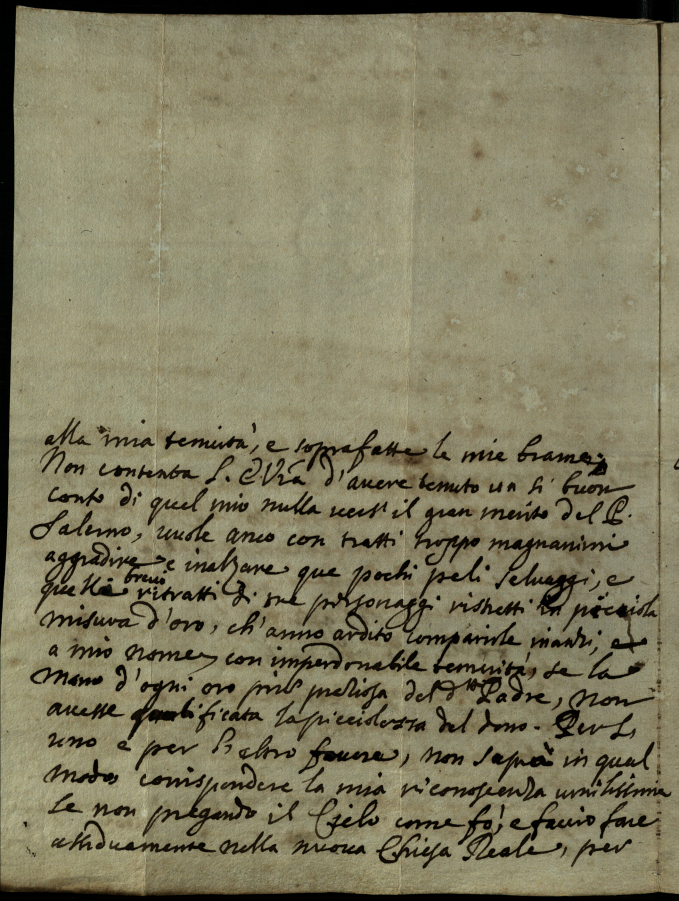 alla mia tenuità, e soprafatte le mie brame;
Non contenta S. E. Vra d'avere tenuto un sì buon
conto di quel mio nulla vers' il gran merito del P.
Salerno, vuole anco con tratti troppo magnanimi
aggradire e inalzare que pochi peli selvaggi, e
quelli brevi ritratti di tre personaggi ristretti in picciola
misura d'oro, ch'anno ardito comparirle inanzi, e
a mio nome, con imperdonabile temerità, se la
Mano d'ogni oro più preziosa del dtto Padre, non
avesse qualificata la picciolezza del dono. Per l'
uno e per l'altro favore, non saprò in qual
modo corrispondere la mia riconoscenza umilissima
se non pregando il Cielo come fò, e faccio fare
assiduamente nella nuova Chiesa Reale, per